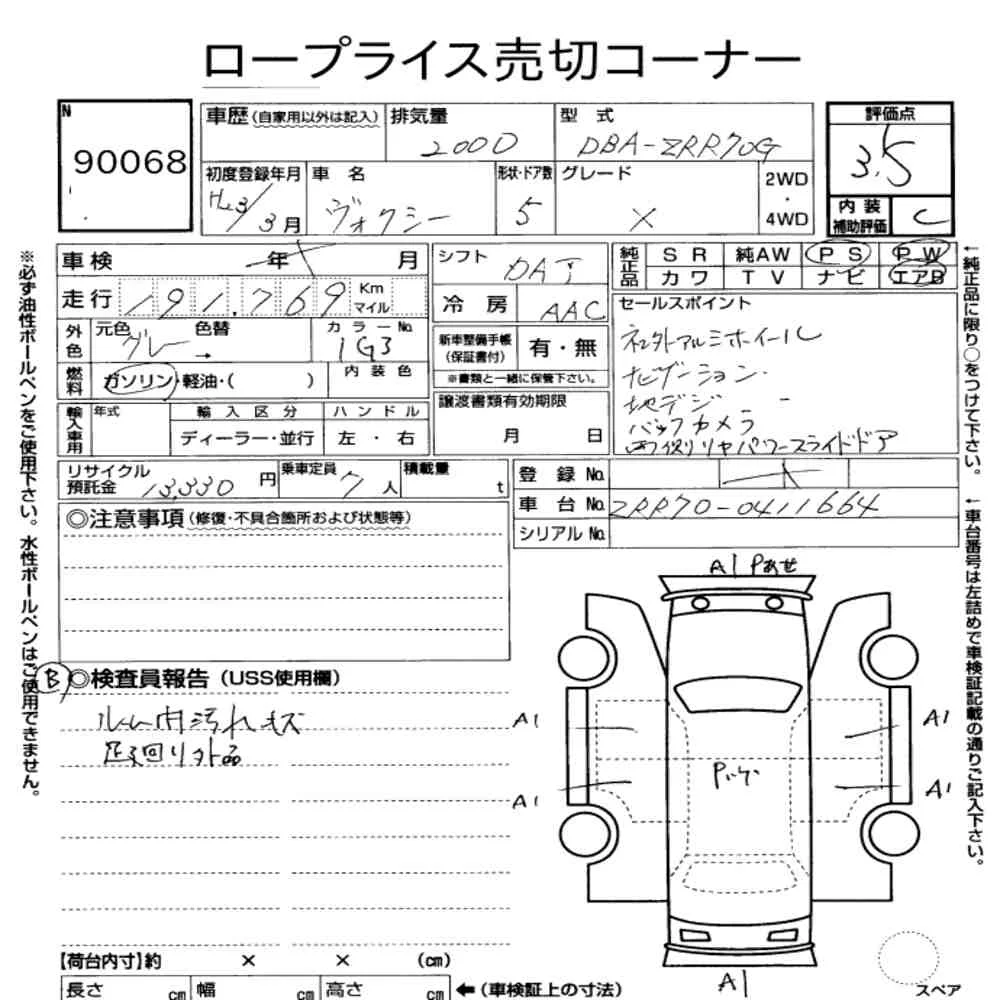 ロープライス売切コーナー
N
90068
車歴 (自家用以外は記入)
排気量
2000
型 式
DBA-ZRR70G
評価点
3.5
初度登録年月
H23/3月
車 名
ヴォクシー
形状・ドア数
5
グレード
X
2WD
・
4WD
内 装
補助評価
C
車検
年 月
シフト
DAT
純正品
S R 純AW P S P W
カワ T V ナビ エアB
走行
191,769
Km
マイル
冷 房
AAC
セールスポイント
社外アルミホイール
ナビゲーション
地デジ
バックカメラ
両側リヤパワースライドドア
外色
元色
グレー
色替
→
カラーNo.
1G3
新車整備手帳
(保証書付)
有・無
※書類と一緒に保管下さい。
燃料
ガソリン・軽油・( )
内 装 色
輸入車用
年式
輸 入 区 分
ハ ン ド ル
ディーラー・並行
左 ・ 右
譲渡書類有効期限
月 日
リサイクル
預託金
13,330 円
乗車定員
7 人
積載量
t
登 録 No.
車 台 No.
ZRR70-0411664
シリアル No.
◎注意事項 (修復・不具合箇所および状態等)
B
◎検査員報告 (USS使用欄)
ルーム内汚れキズ
足廻り外品
A1 Pあせ
A1
A1
A1
A1
Pハゲ
A1
スペア
【荷台内寸】約 × × (cm)
長さ cm 幅 cm 高さ cm ←(車検証上の寸法)
※必ず油性ボールペンをご使用下さい。水性ボールペンはご使用できません。
←純正品に限り○をつけて下さい。
←車台番号は左詰めで車検証記載の通りご記入下さい。